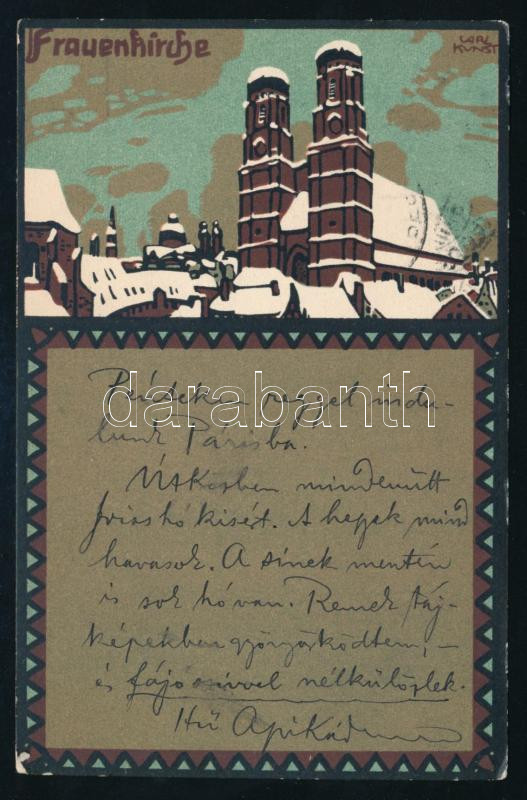 Frauenkirche
CARL
KUNST
Pénteken reggel indu-
lunk Párisba.
Útközben mindenütt
friss hó kisért. A hegyek mind
havasok. A sinek mentén
is sok hó van. Remek táj-
képekben gyönyörködtem, –
és fájó szivvel nélkülözlek.
Hű Apikád
darabanth
.com